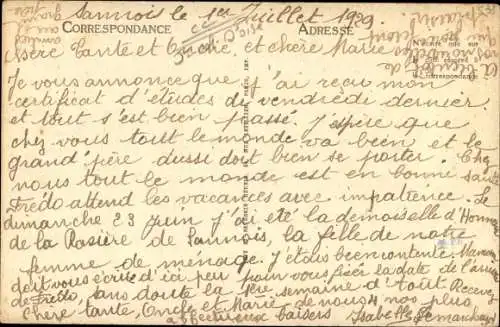 Sannois le 1er Juillet 1929
CORRESPONDANCE
ADRESSE
Chère Tante et Oncle, et chère Marie
Je vous annonce que j'ai reçu mon
certificat d'études du vendredi dernier
et tout s'est bien passé. J'espère que
chez vous tout le monde va bien et le
grand père aussi doit bien se porter. Chez
nous tout le monde est en bonne santé
Fredo attend les vacances avec impatience. Le
dimanche 23 juin j'ai été la demoiselle d'Honneur
de la Rosière de Sannois, la fille de notre
femme de ménage. J'étais bien contente Maman
doit vous écrire d'ici peu pour vous fixer la date de l'arrivée
de Fredo, sans doute la 1ère semaine d'Août. Recevez
chère tante, Oncle et Marie de nous 4 nos plus
affectueux baisers